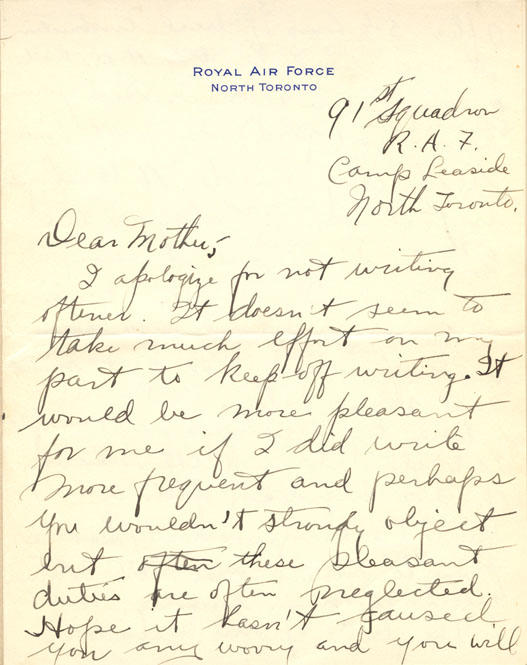 ROYAL AIR FORCE
NORTH TORONTO
91st Squadron
R. A. F.
Camp Leaside
North Toronto.
Dear Mother;
I apologize for not writing
oftener. It doesn't seem to
take much effort on my
part to keep off writing. It
would be more pleasant
for me if I did write
more frequent and perhaps
you wouldn't strongly object
but often these pleasant
duties are often neglected.
Hope it hasn't caused
you any worry and you will